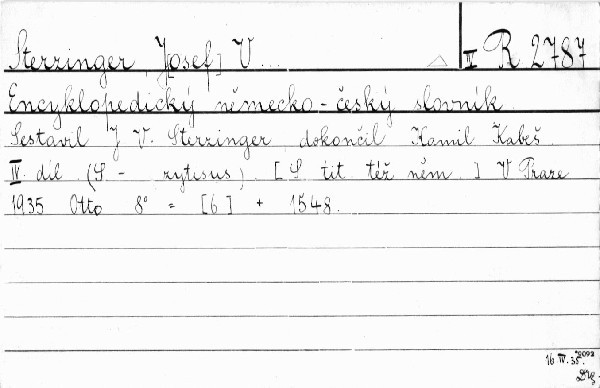 Sterzinger J[osef] V... II R 2787
Encyklopedický německo-český slovník
Sestavil J V. Sterzinger dokončil Kamil Kabeš
IV díl (S - zytisus) [S tit též něm.] V Praze
1935 Otto 8° = [6] + 1548.
16 IV. 35.